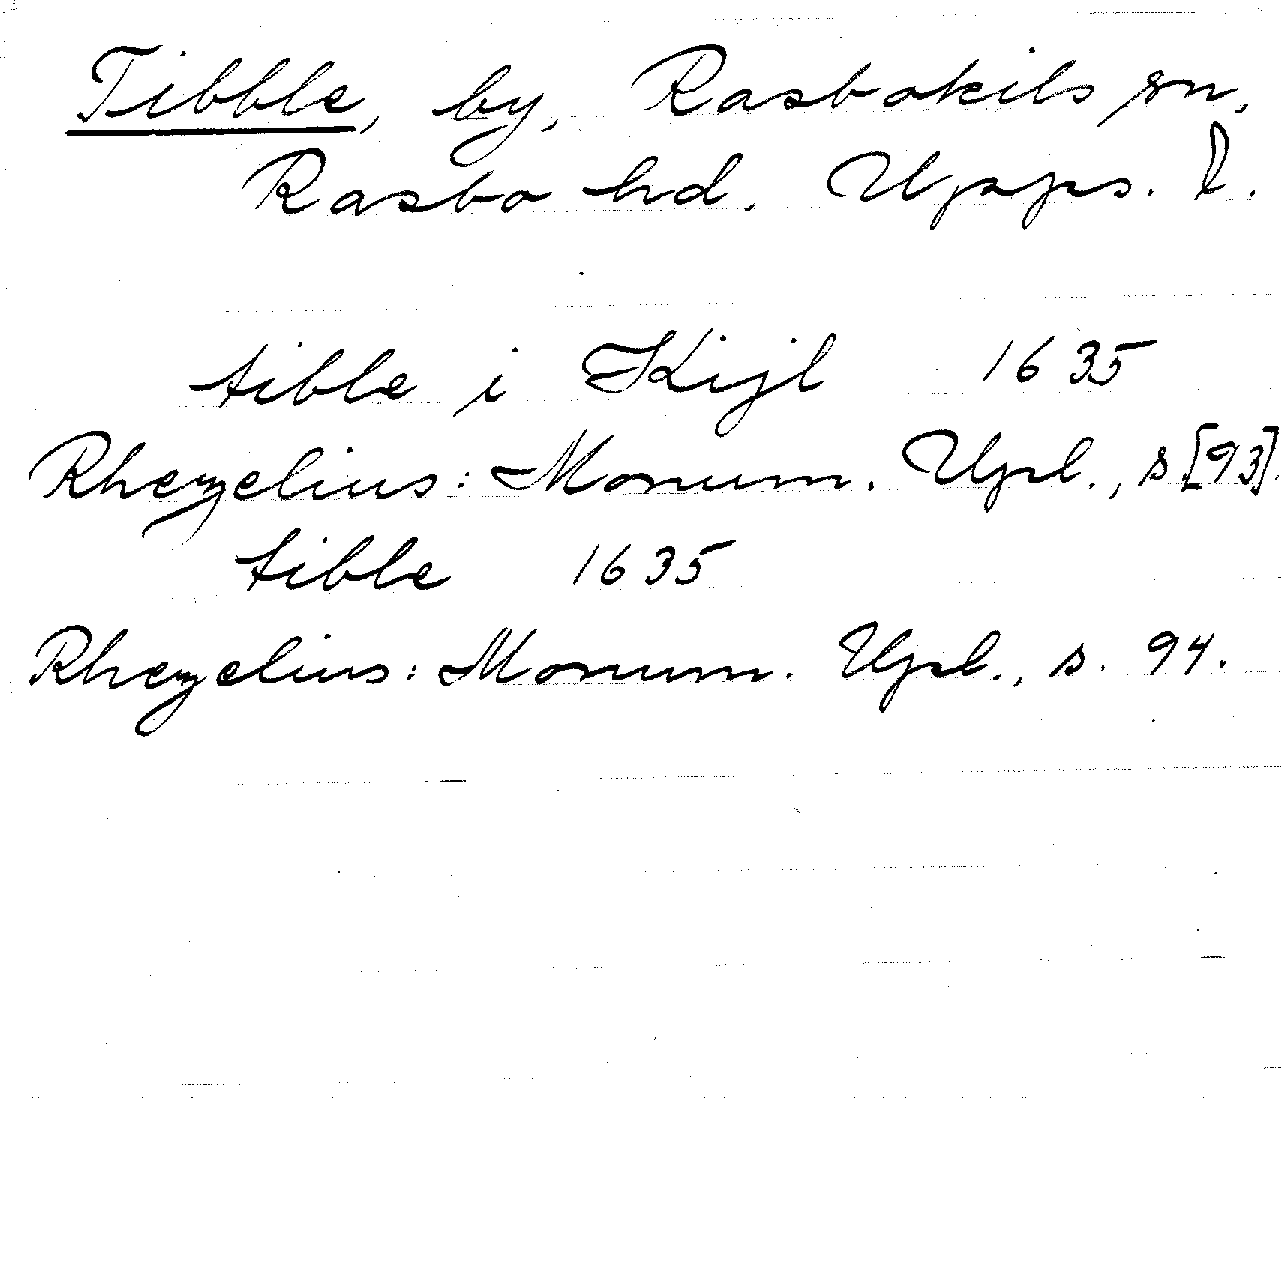 Tibble, by, Rasbokils sn,
Rasbo hd. Upps. l.
tible i Kijl 1635
Rhezelius: Monum. Upl., s [93].
tible 1635
Rhezelius: Monum. Upl., s. 94.